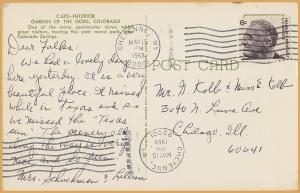 CAFE-INTERIOR
GARDEN OF THE GODS, COLORADO
One of the many spectacular views which
greet visitors, touring this year round park near
Colorado Springs.
POST CARD
6c
CHEYENNE, WY
MAY 15
PM
1968
82001
Dear Folks:
We had a lovely day
here yesterday. It is a very
beautiful place. It rained
while in Texas and as
we missed the "Texas
sun". The scenery all
along the way is very
nice and so green
Mrs. Schuchman & Lillian
Mr. G Kolb & Miss E Kolb
3040 N Luna Ave
Chicago, Ill.
60641